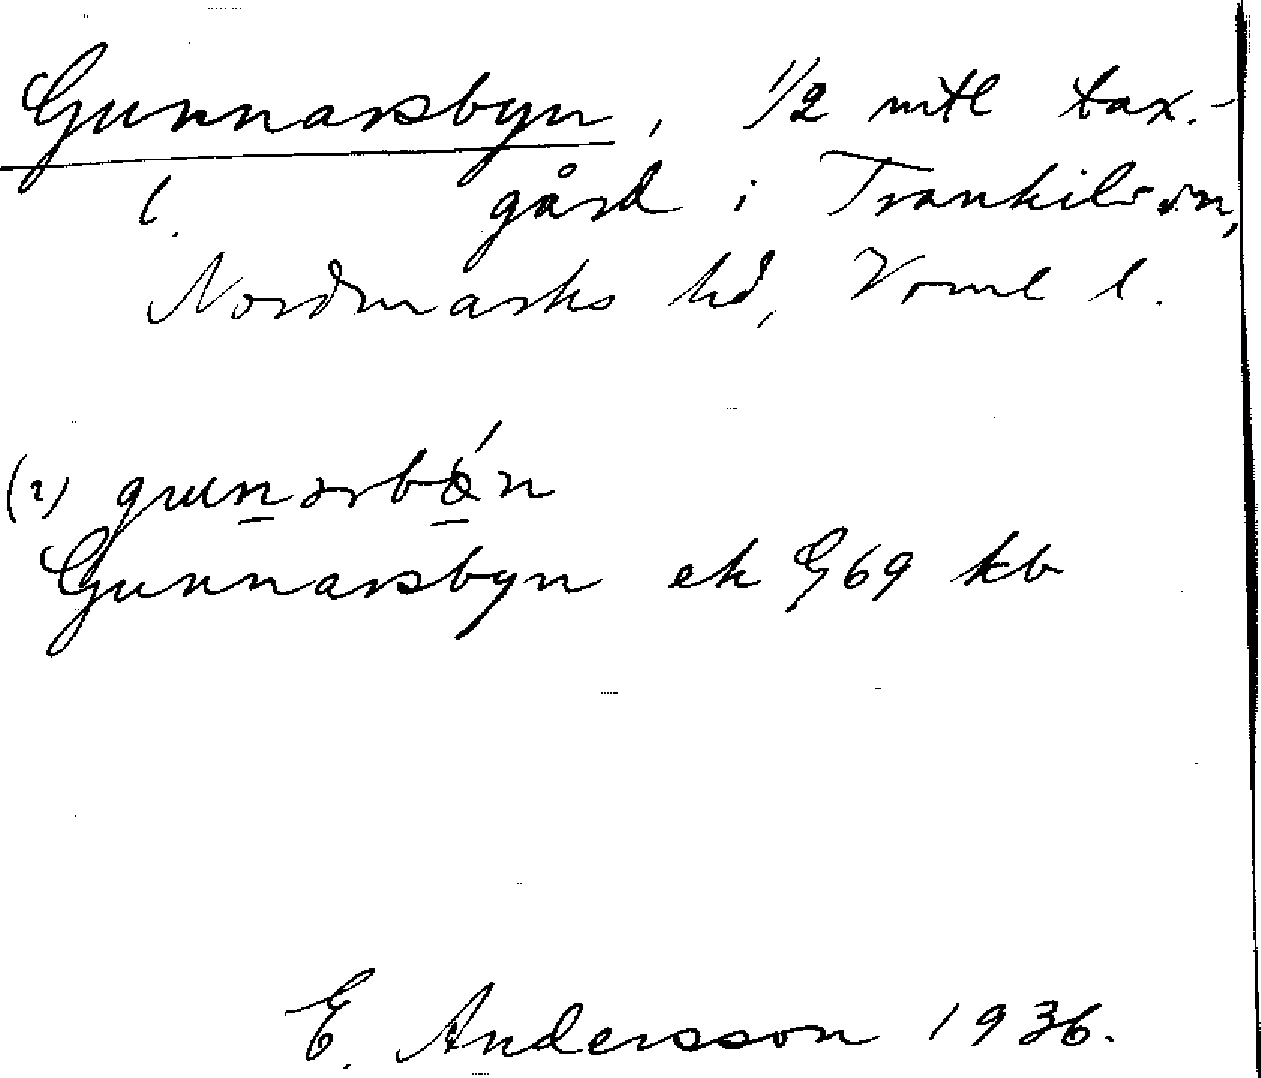 Gunnarsbyn, 1/2 mtl tax.-
l. gård i Trankilsrn,
Nordmarks hd, Vrml l.
(2)
Gunnarsbyn ek G69 kb
E. Andersson 1936.